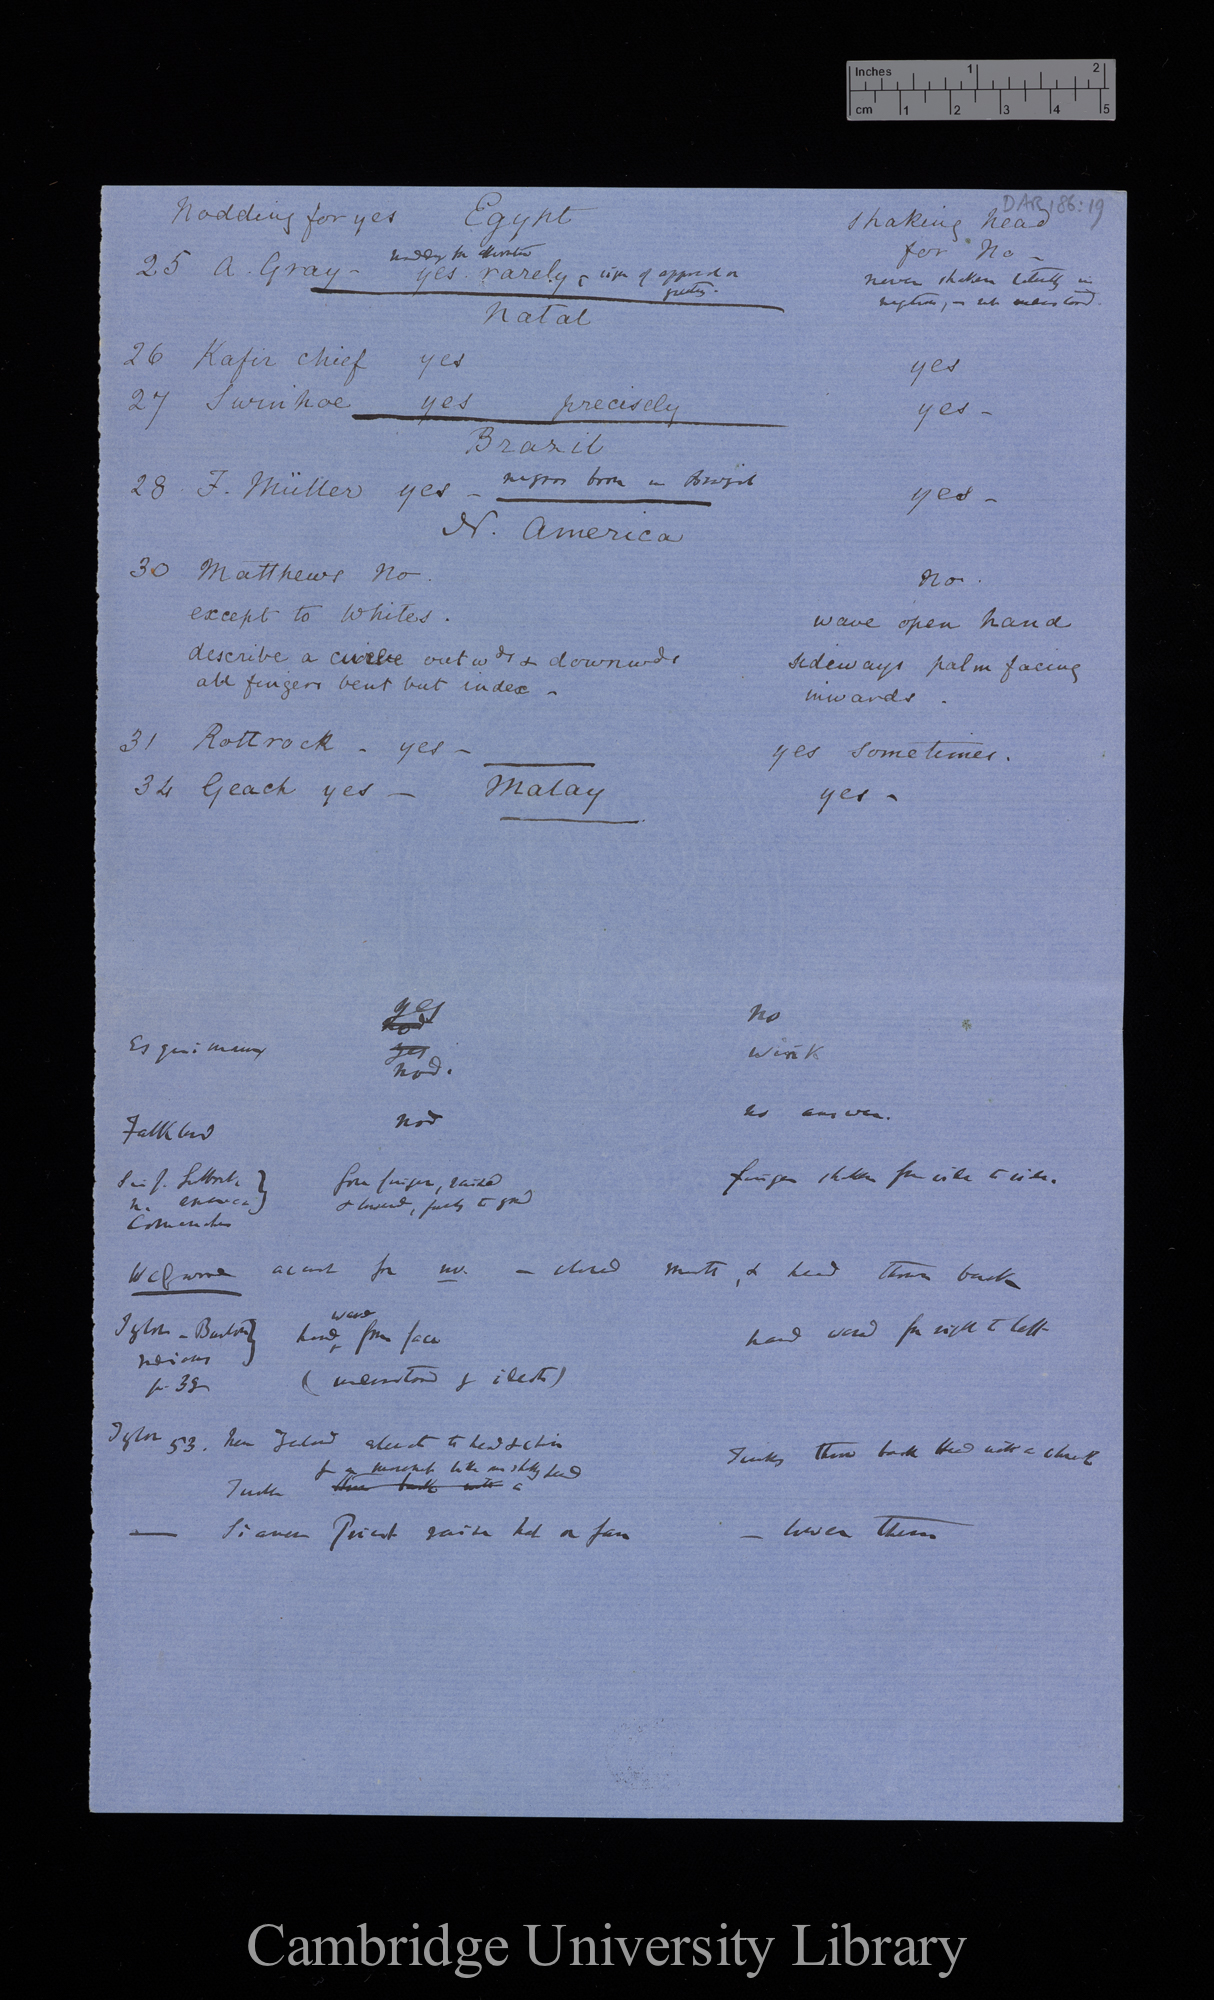 Inches 1 2
cm 1 2 3 4 5
DAR 186:19
Nodding for yes Egypt shaking head
for No -
25 A. Gray - yes rarely, sign of approval or
never shaken laterally in
Natal
26 Kafir chief yes yes
27 Swinhoe yes precisely yes -
Brazil
28 F. Müller yes - negros born in Brazil yes -
N. America
30 Matthews No. No.
except to Whites. wave open hand
describe a curve outwds & downwds sideways palm facing
all fingers bent but index - inwards.
31 Rottrock - yes - yes sometimes.
34 Geach yes - Malay yes -
yes no
nod
Esquimaux yes wink
nod.
Falkland nod no answer.
fore finger, raised finger shaken from side to side.
N. America & lowered,
Comanches
Wedgwood account for no. - closed mouth, & head thrown back
Tylor - Burton hand wave from face hand waved from right to left
p. 38
(understood by idiots)
Tylor 53. New Zealand elevate the head & chin Turks throw back head with a cluck
Turks throw back with a
— Siamese Priest raise hat or fan - lower them
Cambridge University Library